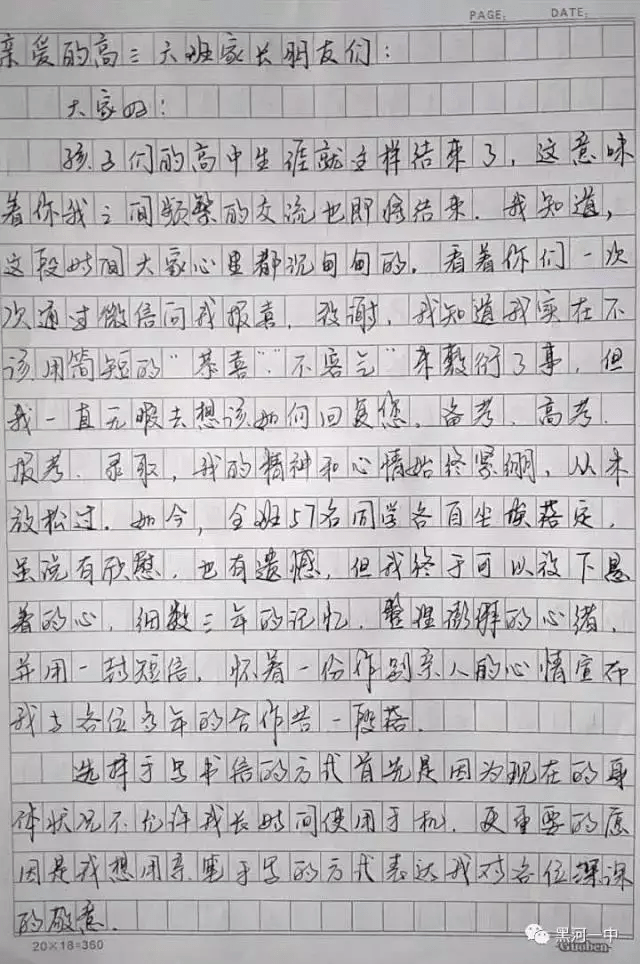 PAGE: DATE:
亲爱的高三六班家长朋友们:
大家好:
孩子们的高中生涯就这样结束了,这意味
着你我之间频繁的交流也即将结束.我知道,
这段时间大家心里都沉甸甸的.看着你们一次
次通过微信向我报喜、致谢,我知道我实在不
该用简短的"恭喜""不客气"来敷衍了事,但
我一直无暇去想该如何回复您.备考、高考、
报考、录取,我的精神和心情始终紧绷,从未
放松过.如今,全班57名同学各自尘埃落定,
虽说有欣慰,也有遗憾,但我终于可以放下悬
着的心,细数三年的记忆,整理澎湃的心绪,
并用一封短信,怀着一份作别亲人的心情宣布
我与各位多年的合作告一段落.
选择手写书信的方式首先是因为现在的身
体状况不允许我长时间使用手机.更重要的原
因是我想用亲笔手写的方式表达我对各位深深
的敬意.
20×18=360
黑河一中
Guoben